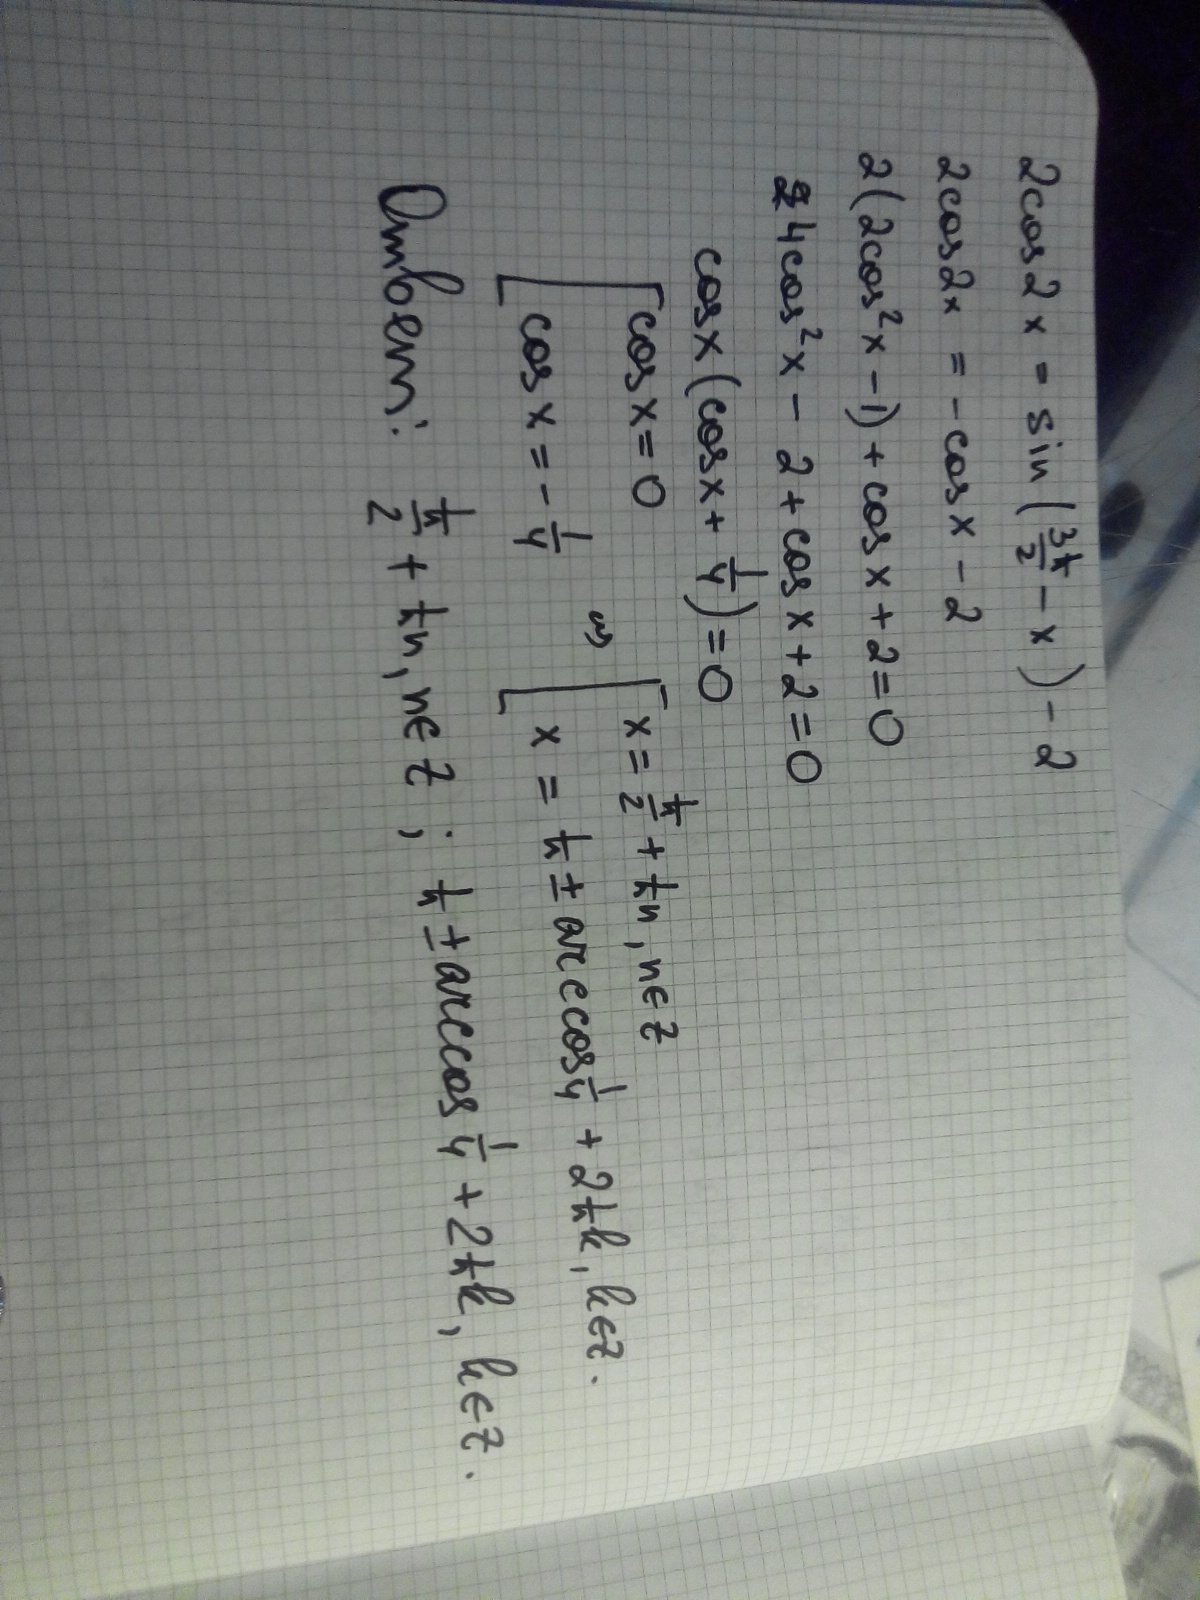 2cos2x = sin(3π/2 - x) - 2
2cos2x = -cosx - 2
2(2cos²x - 1) + cosx + 2 = 0
4cos²x - 2 + cosx + 2 = 0
cosx(cosx + 1/4) = 0
[cosx = 0 ⇔ [x = π/2 + πn, n∈Z
[cosx = -1/4 [x = π ± arccos 1/4 + 2πk, k∈Z.
Ответ: π/2 + πn, n∈Z; π ± arccos 1/4 + 2πk, k∈Z.